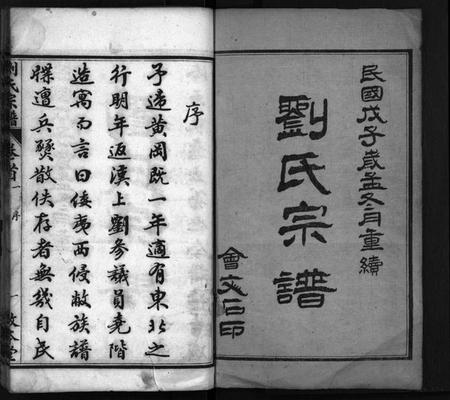 民國戊子歲孟冬月重續
劉氏宗譜
會文石印
序
予違黃岡既一年適有東北之
行明年返漢上劉參議員堯階
造寓而言曰倭夷西侵敝族譜
牒遭兵燹散佚存者無幾自民
劉氏宗譜
卷首一
序
一
敦本堂